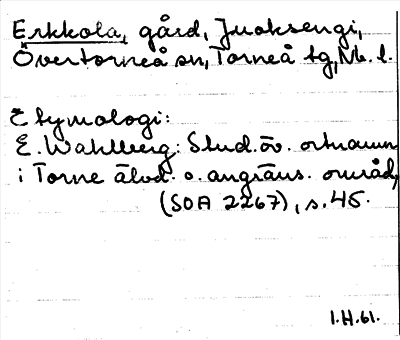 Erkkola, gård, Juoksengi,
Övertorneå sn, Torneå tg, Nb. l.
Etymologi:
E. Wahlberg: Stud. öv. ortnamn
i Torne älvd. o. angräns. områd.,
(SOA 2267), s. 45.
I.H.61.